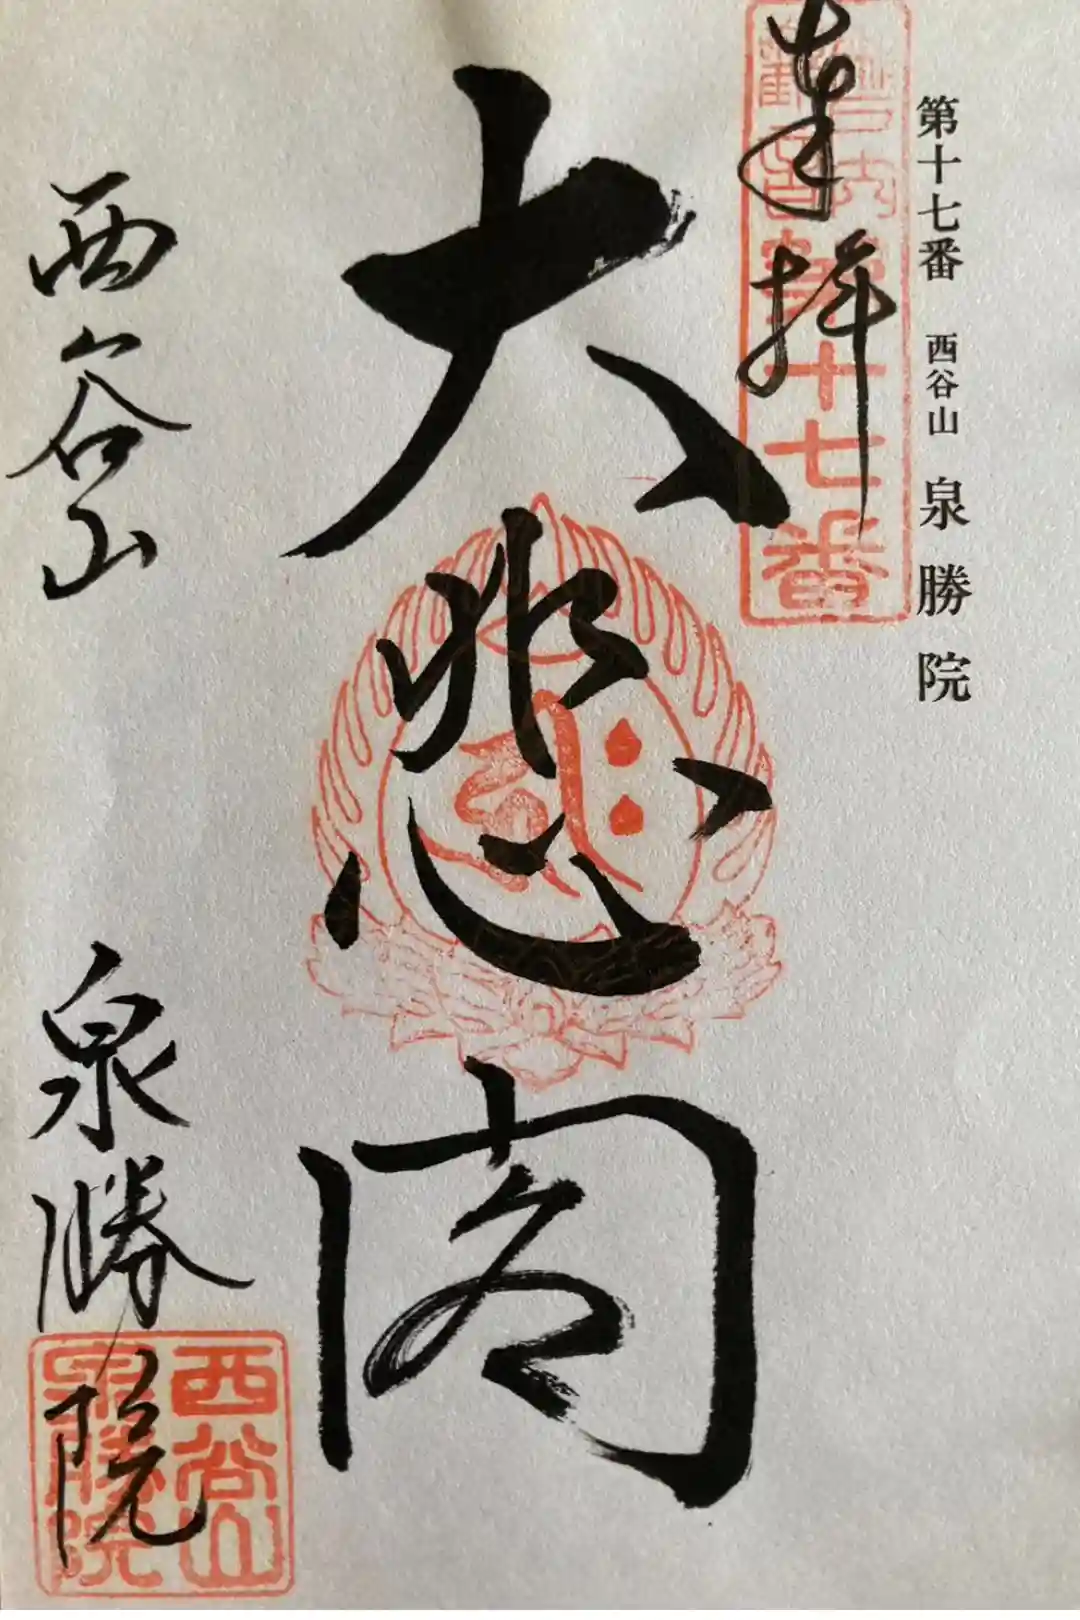 第十七番 西谷山 泉勝院
奉拝
第十七番
大悲閣
西谷山 泉勝院
西谷山
泉勝院